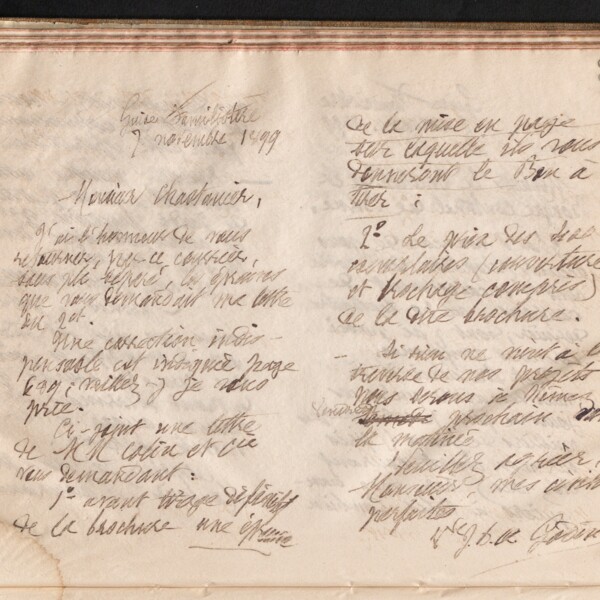 Guise Familistère
7 novembre 1899
Monsieur Chastanier,
J'ai l'honneur de vous
retourner, par ce courrier,
sous pli séparé, les épreuves
que vous demandait ma lettre
du 2 ct.
Une correction indis-
pensable est indiquée page
veillez y je vous
prie.
Ci-joint une lettre
de MM Colin et Cie
vous demandant :
1º avant tirage définitif
de la brochure une épreuve
de la mise en page
sur laquelle ils vous
donneront le Bon à
tirer ;
2º Le prix des
exemplaires (couverture
et brochage compris)
de la dite brochure.
- Si rien ne vient à la
traverse de nos projets
nous serons à Nîmes
prochain
la matinée
Veuillez agréer,
Monsieur, mes civilités
parfaites
Vve J. B. A. Godin